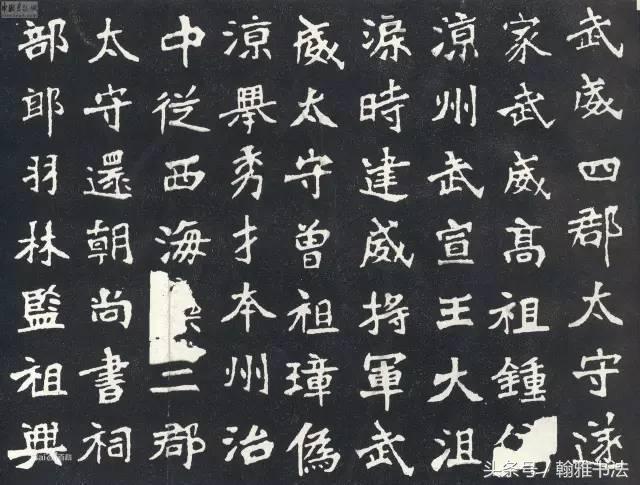 武威四郡太守遂
家武威高祖鍾
涼州武宣王大沮
渠時建威將軍武
威太守曾祖璋偽
涼舉秀才本州治
中從西海二郡
太守還朝尚書祠
部郎羽林監祖興
头条号 / 翰雅书法